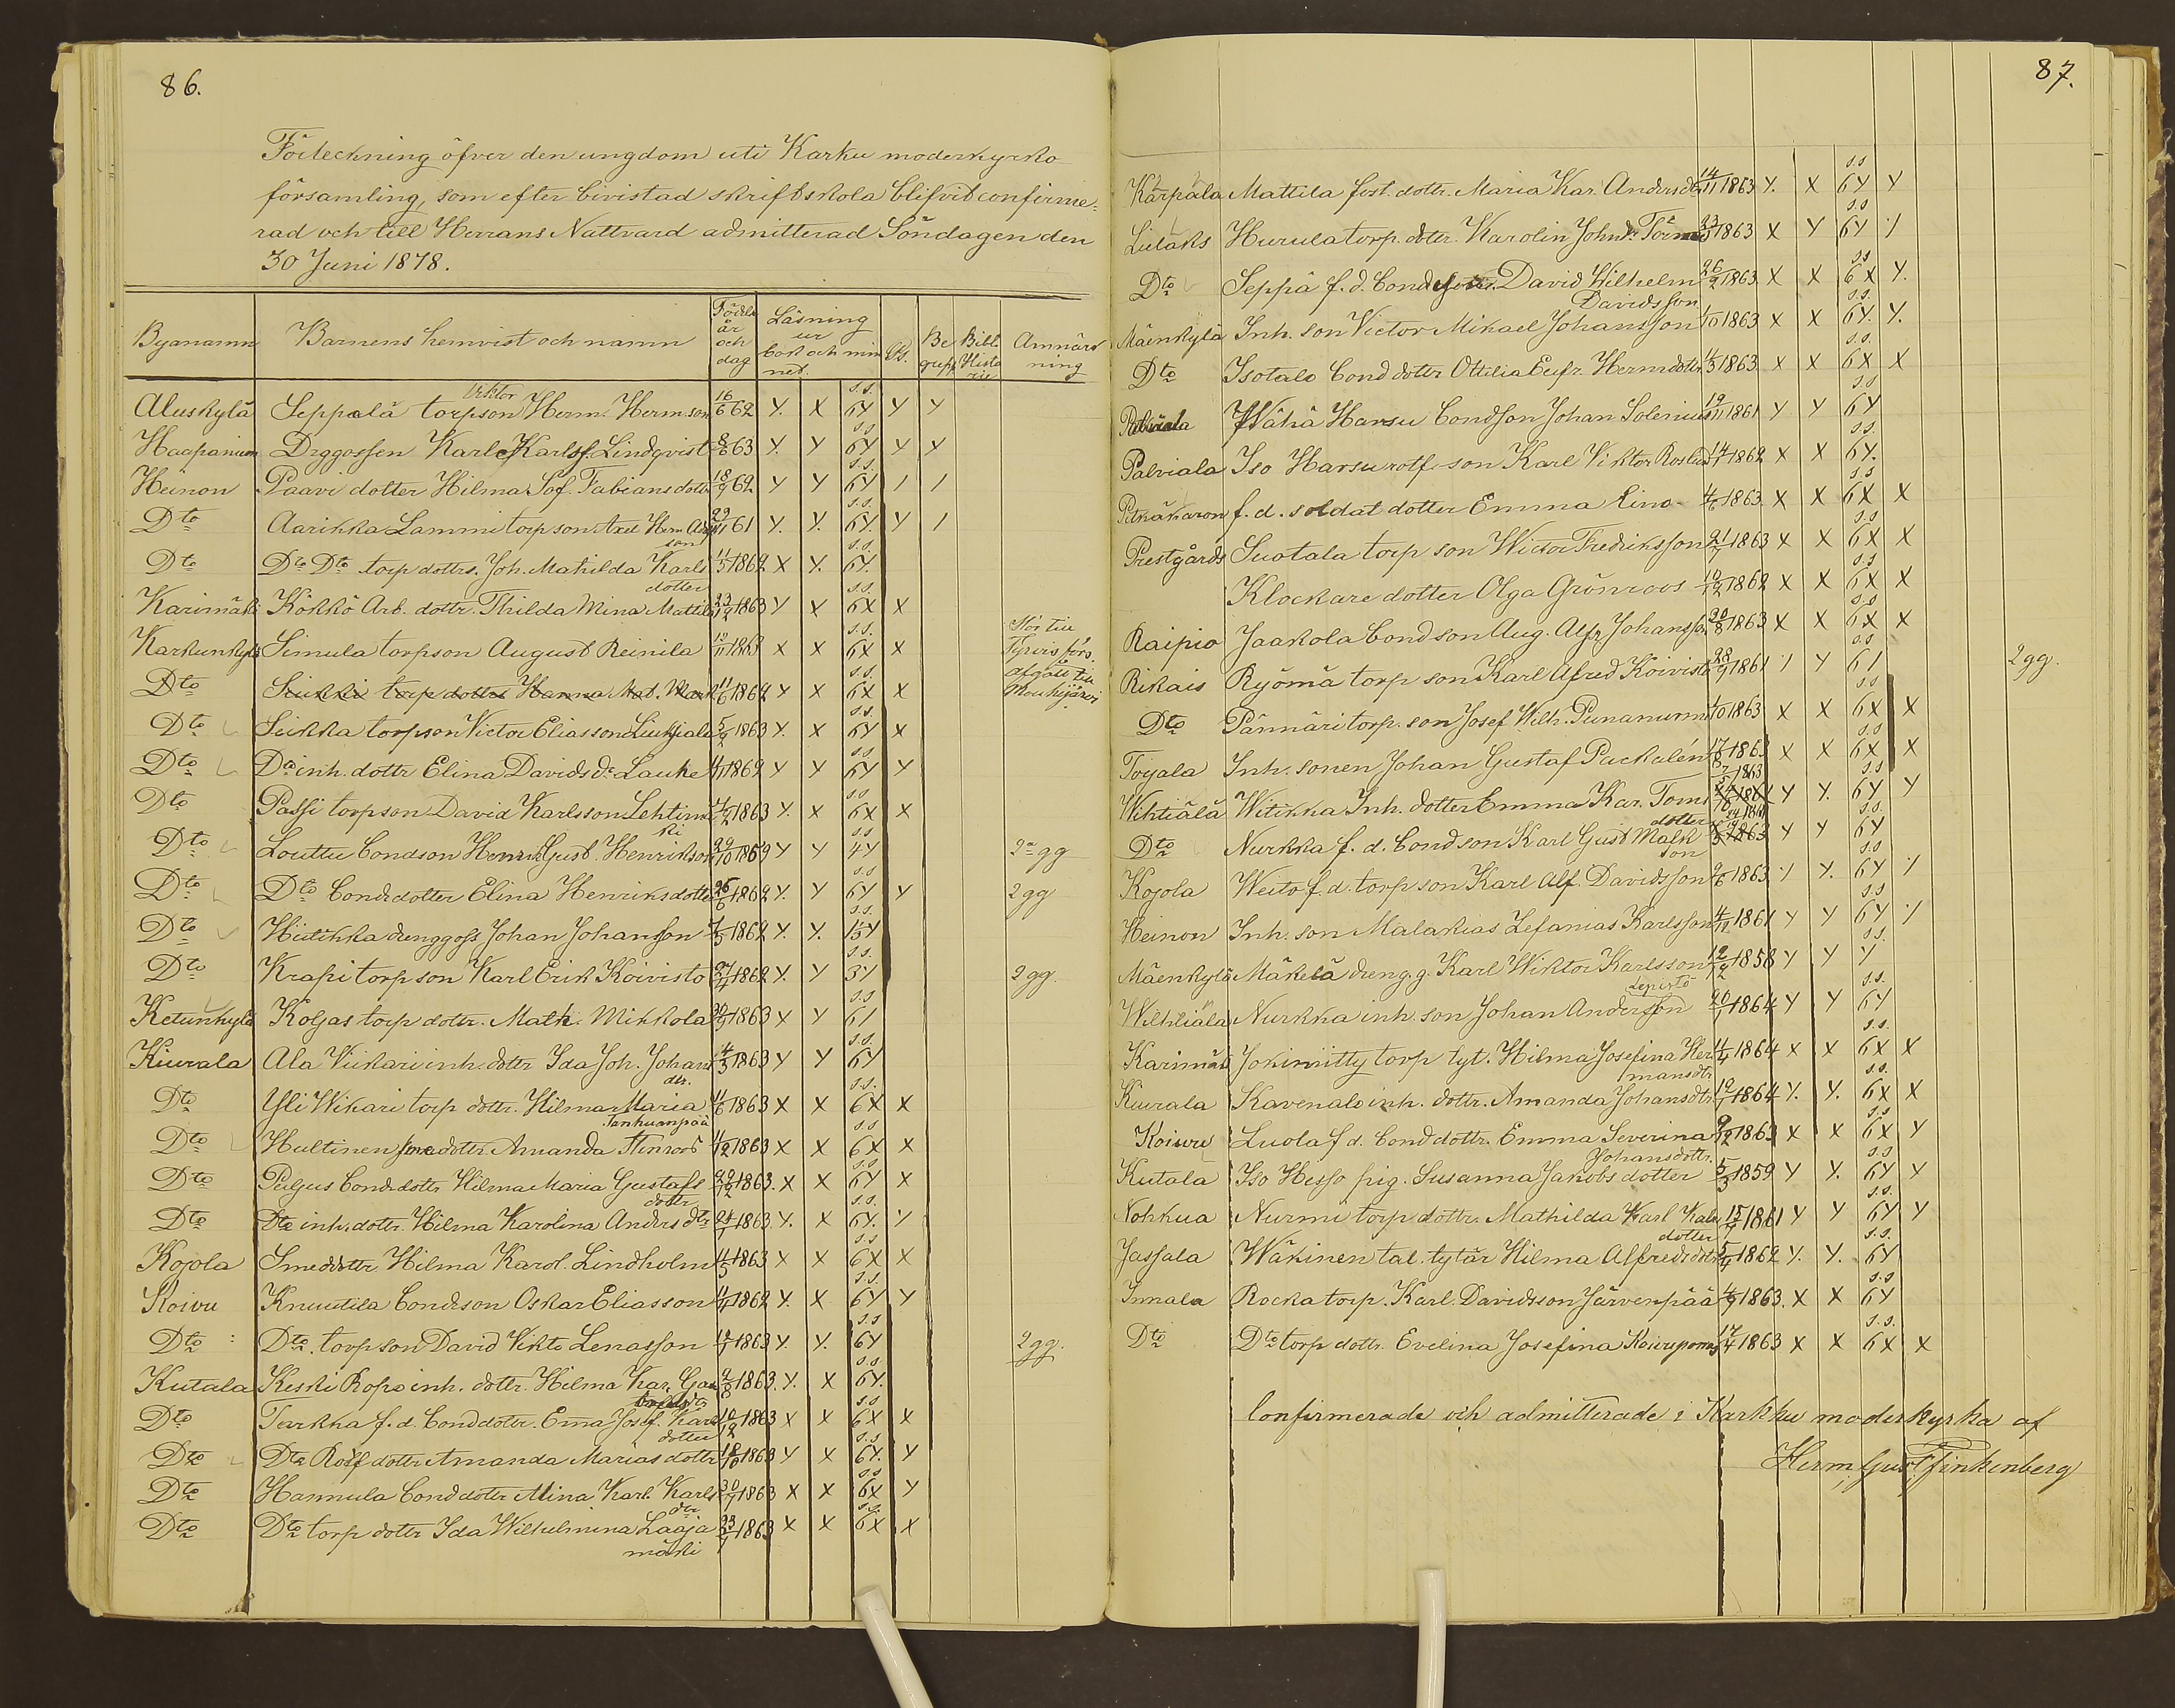 86.
Förteckning öfver den ungdom uti Karku moderkyrko
församling, som efter bivistad skriftskola blifvit confirme=
rad och till Herrans Nattvard admitterad Söndagen den
30 Juni 1878.
Byanamn Barnens hemvist och namn Födelse år och dag Läsning ur bok och min net. Be grepp Bibl. Histo rie Anmärk ning
Aluskylä Seppälä torpson Viktor Herm. Hermson 16/6 62 Y. X s.s. 6Y Y Y
Haapaniemi Drggossen Karl Karlss. Lindqvist 8/6 63 Y. Y s.s 6Y Y Y
Heinon Paavi dotter Hilma Sof. Fabians dottr 18/9 62 Y Y s.s. 6Y / /
Dto Aarikka Lammi torpson Axel Herm. son 29/11 61 Y. Y. s.s. 6Y. Y /
Dto Dto Dto torp dottrs. Joh. Matilda Karls dotter 11/5 1862 X Y. s.s. 6Y.
Karimäki Kökkö Arb. dottr. Thilda Mina Mattila 23/12 1863 Y X s.s. 6X X
Karkunkylä Simula torpson August Reinila 10/11 1863 X X s.s. 6X X
Dto Siukki torp dotter Hanna Mat. 11/6 1862 Y X s.s. 6X X afgått till Mouhijärvi
Dto Siukka torpson Victor Eliasson Liukjala 5/2 1863 Y. X s.s. 6Y X
Dto Dto inh. dottr Elina Davids dr Lauhe 4/11 1862 Y Y s.s 6Y Y
Dto Passi torpson David Karlsson Lehtimäki 1863 Y. X s.s 6X X
Dto Louttu bondson Henrik Gust. Henrikson 29/10 1859 Y Y s.s 4Y 2a gg
Dto Dto bondedotter Elina Henriksdotter 26/6 1862 Y. Y s.s 6Y Y 2 gg
Dto Hiitikka drenggoss Johan Johansson 7/5 1862 Y. Y. s.s.
Dto Krapi torpson Karl Erik Koivisto 1862 Y. Y s.s. 3Y 2 gg.
Ketunkylä Koljas torp dottr. Math. Mikkola 1863 X Y s.s 6/
Kiurala Ala Viikari inh. dottr Ida Joh. Johans dtr. 4/3 1863 Y Y s.s. 6Y
Dto Yli Wikari torp dottr. Hilma Maria Tanhuanpää 11/6 1863 X X s.s. 6X X
Dto Hultinen smedottr. Amanda Stenroos 11/12 1863 X X s.s 6X X
Dto Peljus bondedottr Hilma Maria Gustafs dottr 1863. X X s.s 6Y X
Dto Dto inh. dottr. Hilma Karolina Anders dtr 28/7 1863. Y. X s.s. 6Y. Y
Kojola Smeddottr Hilma Karol. Lindholm 11/5 1863 X X s.s 6X X
Koivu Knuutila bondeson Oskar Eliasson 11/4 1862 Y. X s.s. 6Y Y
Dto Dto. torpson David Vikto Lenasson 1863 Y. Y. s.s 6Y 2 gg.
Kutala Keski Ropo inh. dottr. Hilma Kar. 2/8 1863. Y. X s.s. 6Y.
Dto Tarkka f.d. bonddotr. Ema Josef. Karls dotter 10/12 1863 X X s.s 6X X
Dto Dto Rolf dottr Amanda Marias dottr 18/10 1863 Y X s.s 6Y. Y
Dto Hannula bonddottr Mina Karl. Karls dtr 30/7 1863 X X s.s 6X Y
Dto Dto torp dottr Ida Wilhelmina Laaja mäki 23/7 1863 X X s.s. 6X X
87.
Kärpälä Mattila fest. dottr. Maria Kar. Anders dtr 14/11 1863 Y. X s.s 6Y Y
Liilaks Hurula torp. dottr. Karolin Johns dr 1863 X Y s.s 6Y Y
Dto Seppä f.d. bond David Wilhelm Davidsson 26/2 1863 X X s.s 6X Y.
Mäenkylä Inh. son Victor Mikael Johansson 1/10 1863 X X s.s. 6Y. Y.
Dto Isotalo bond dottr Ottilia Eufr. Herm dottr 1863 X X s.s. 6X X
Palviala Wähä Hansu bondson Johan Solenius 19/11 1861 Y Y s.s 6Y
Palviala Iso Harsu rotf. son Karl Viktor 1862 X X s.s. 6Y.
f. d. soldat dotter Emma Eino 1863. X X s.s 6X X
Prestgårds Suotala torp son Wictor Fredriksson 21/1 1863 X X s.s 6X X
Klockare dotter Olga Grönroos 10/12 1862 X X s.s 6X X
Raipio Jaakola bondson Aug. Alfr Johansson 28/8 1863 X X s.s 6X X
Rikais Ryömä torp son Karl Alfred Koivisto 28/9 1861 Y Y s.s 6/ 2 gg.
Dto Pännäri torp. son Josef Wilh. Punanurmi 1/10 1863 X X s.s 6X X
Tojala Inh. sonen Johan Gustaf Packalén 17/8 1863 X X s.s 6X X
Wihtiälä Witikka Inh. dotter Emma Kar. Toms dotter 1863 Y Y. s.s 6Y Y
Dto Nurkka f. d. bondson Karl Gust Malk son 1863 Y Y s.s. 6Y
Kojola Weito f. d. torp son Karl Alf. Davidsson 2/6 1863 Y Y. s.s 6Y Y
Heinon Inh. son Malakias Zefanias Karlsson 4/11 1861 Y Y s.s 6Y Y
Mäenkylä Mäkelä dreng.g. Karl Wiktor Karlsson 12/12 1858 Y Y s.s. Y
Wihtiälä Nurkka inh. son Johan Anderson Lepistö 20/1 1864 Y Y s.s. 6Y
Karimäki Jokiniitty torp tyt. Hilma Josefina Her mansdtr 11/4 1864 X X s.s. 6X X
Kiurala Kavenalo inh. dottr. Amanda Johansdtr 12/1 1864 Y. Y. s.s. 6X X
Koivu Luola f d. bonddottr. Emma Severina Johansdottr. 9/12 1863 X X s.s 6X Y
Kutala Iso Hesso pig. Susanna Jakobs dotter 5/3 1859 Y Y. s.s 6Y Y
Nohkua Nurmi torp dottr. Mathilda Karl dotter 15/7 1861 Y Y s.s. 6Y Y
Jassala Wäkinen tal. tytär Hilma Alfreds dottr 5/4 1862 Y. Y. s.s. 6Y
Innala Rocka torp. Karl. Davidsson Järvenpää 1863. X X s.s 6Y
Dto Dto torp dottr. Evelina Josefina 17/4 1863 X X s.s. 6X X
Confirmerade och admitterade i Karkku moderkyrka af
Herm. Gust. Finkenberg